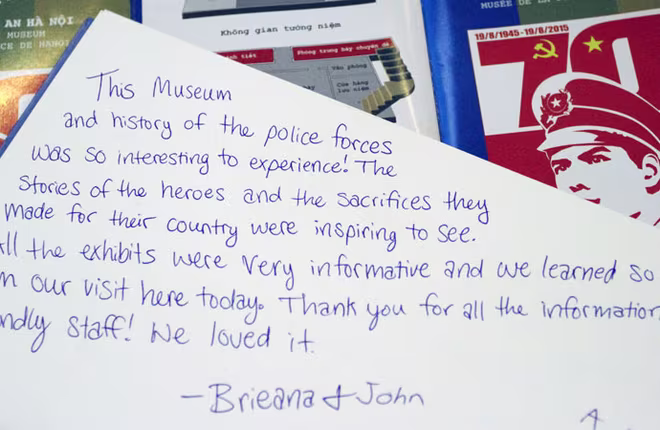 AN HÀ NỘI
MUSEUM
CE DE HANOI
Không gian tưởng niệm
Phòng trưng bày chuyên đề
19/8/1945-19/8/2015
70
This Museum
and history of the police forces
was so interesting to experience! The
stories of the heroes and the sacrifices they
made for their country were inspiring to see.
ll the exhibits were very informative and we learned so
n our visit here today. Thank you for all the information
ndly staff! We loved it.
- Brieana & John